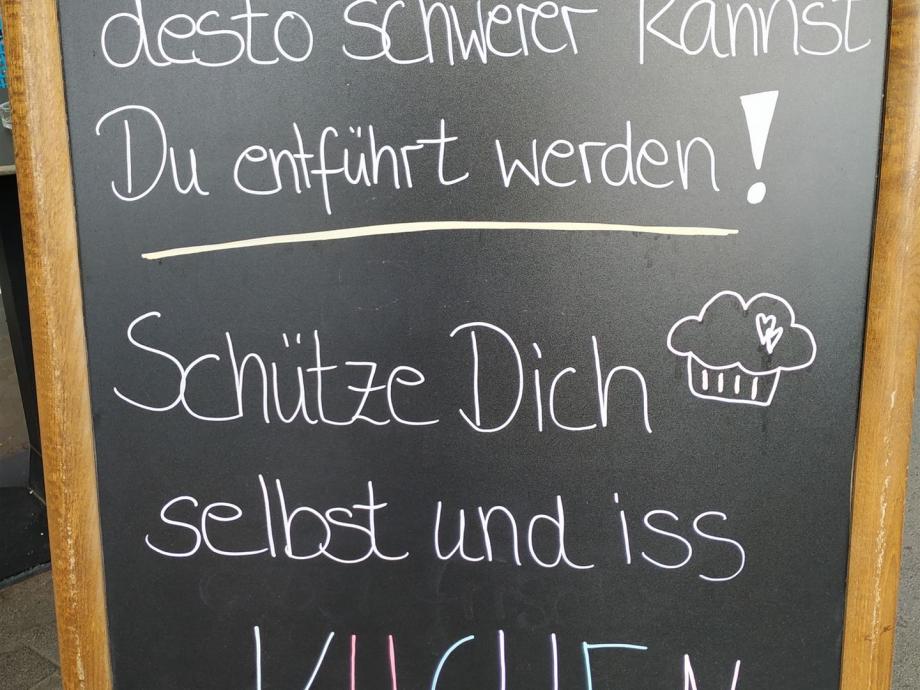 desto schwerer kannst
Du entführt werden!
Schütze Dich
selbst und iss
KUCHEN